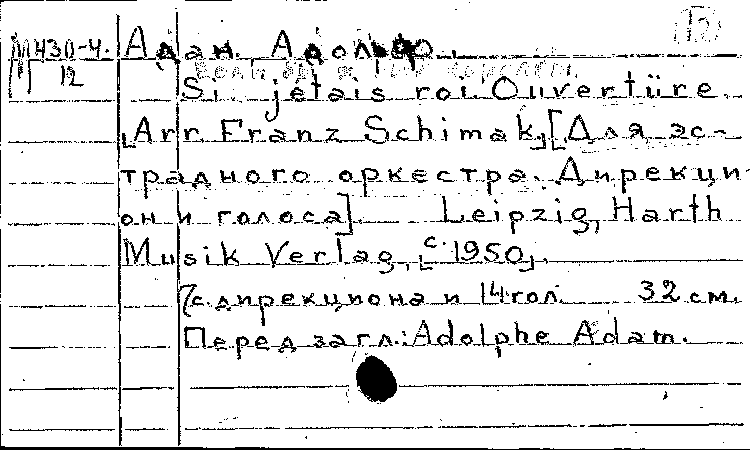 12
М430-4. Адан. Адольф.
12 Если бы я был королем.
Si jetais roi. Ouvertüre
[Arr. Franz Schimak,] [Для эс-
традного оркестра. Дирекци-
он и голоса]. Leipzig, Harth
Musik Verlag, [с. 1950].
7с. дирекциона и 14 гол. 32 см.
Перед загл.: Adolphe Adam.